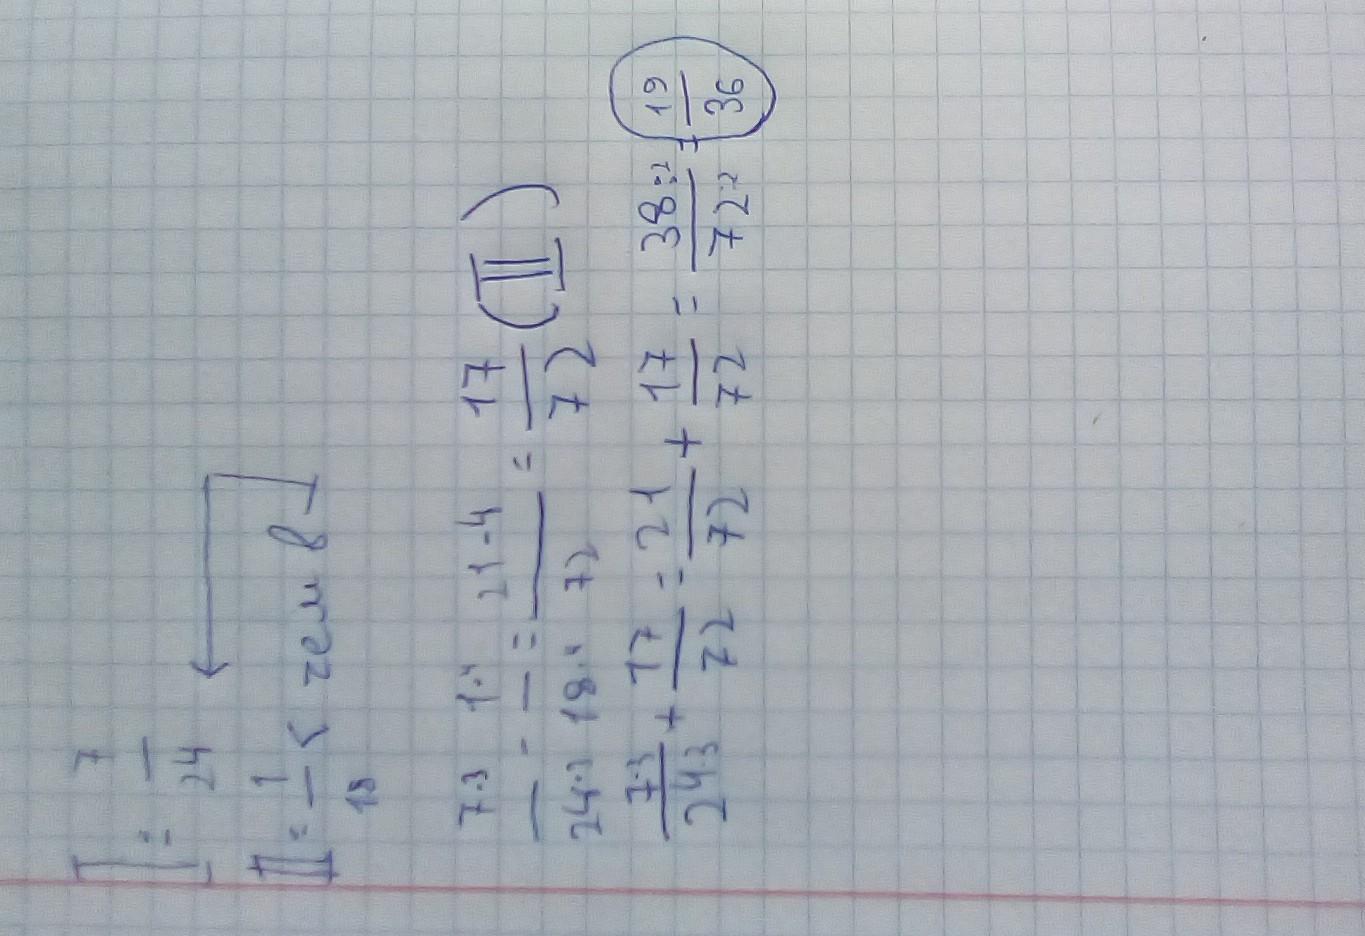 I = 7/24
II = 1/18 < чем в
7·3/24·3 - 1·4/18·4 = 21-4/72 = 17/72 (II)
7·3/24·3 + 17/72 = 21/72 + 17/72 = 38:2/72:2 = 19/36